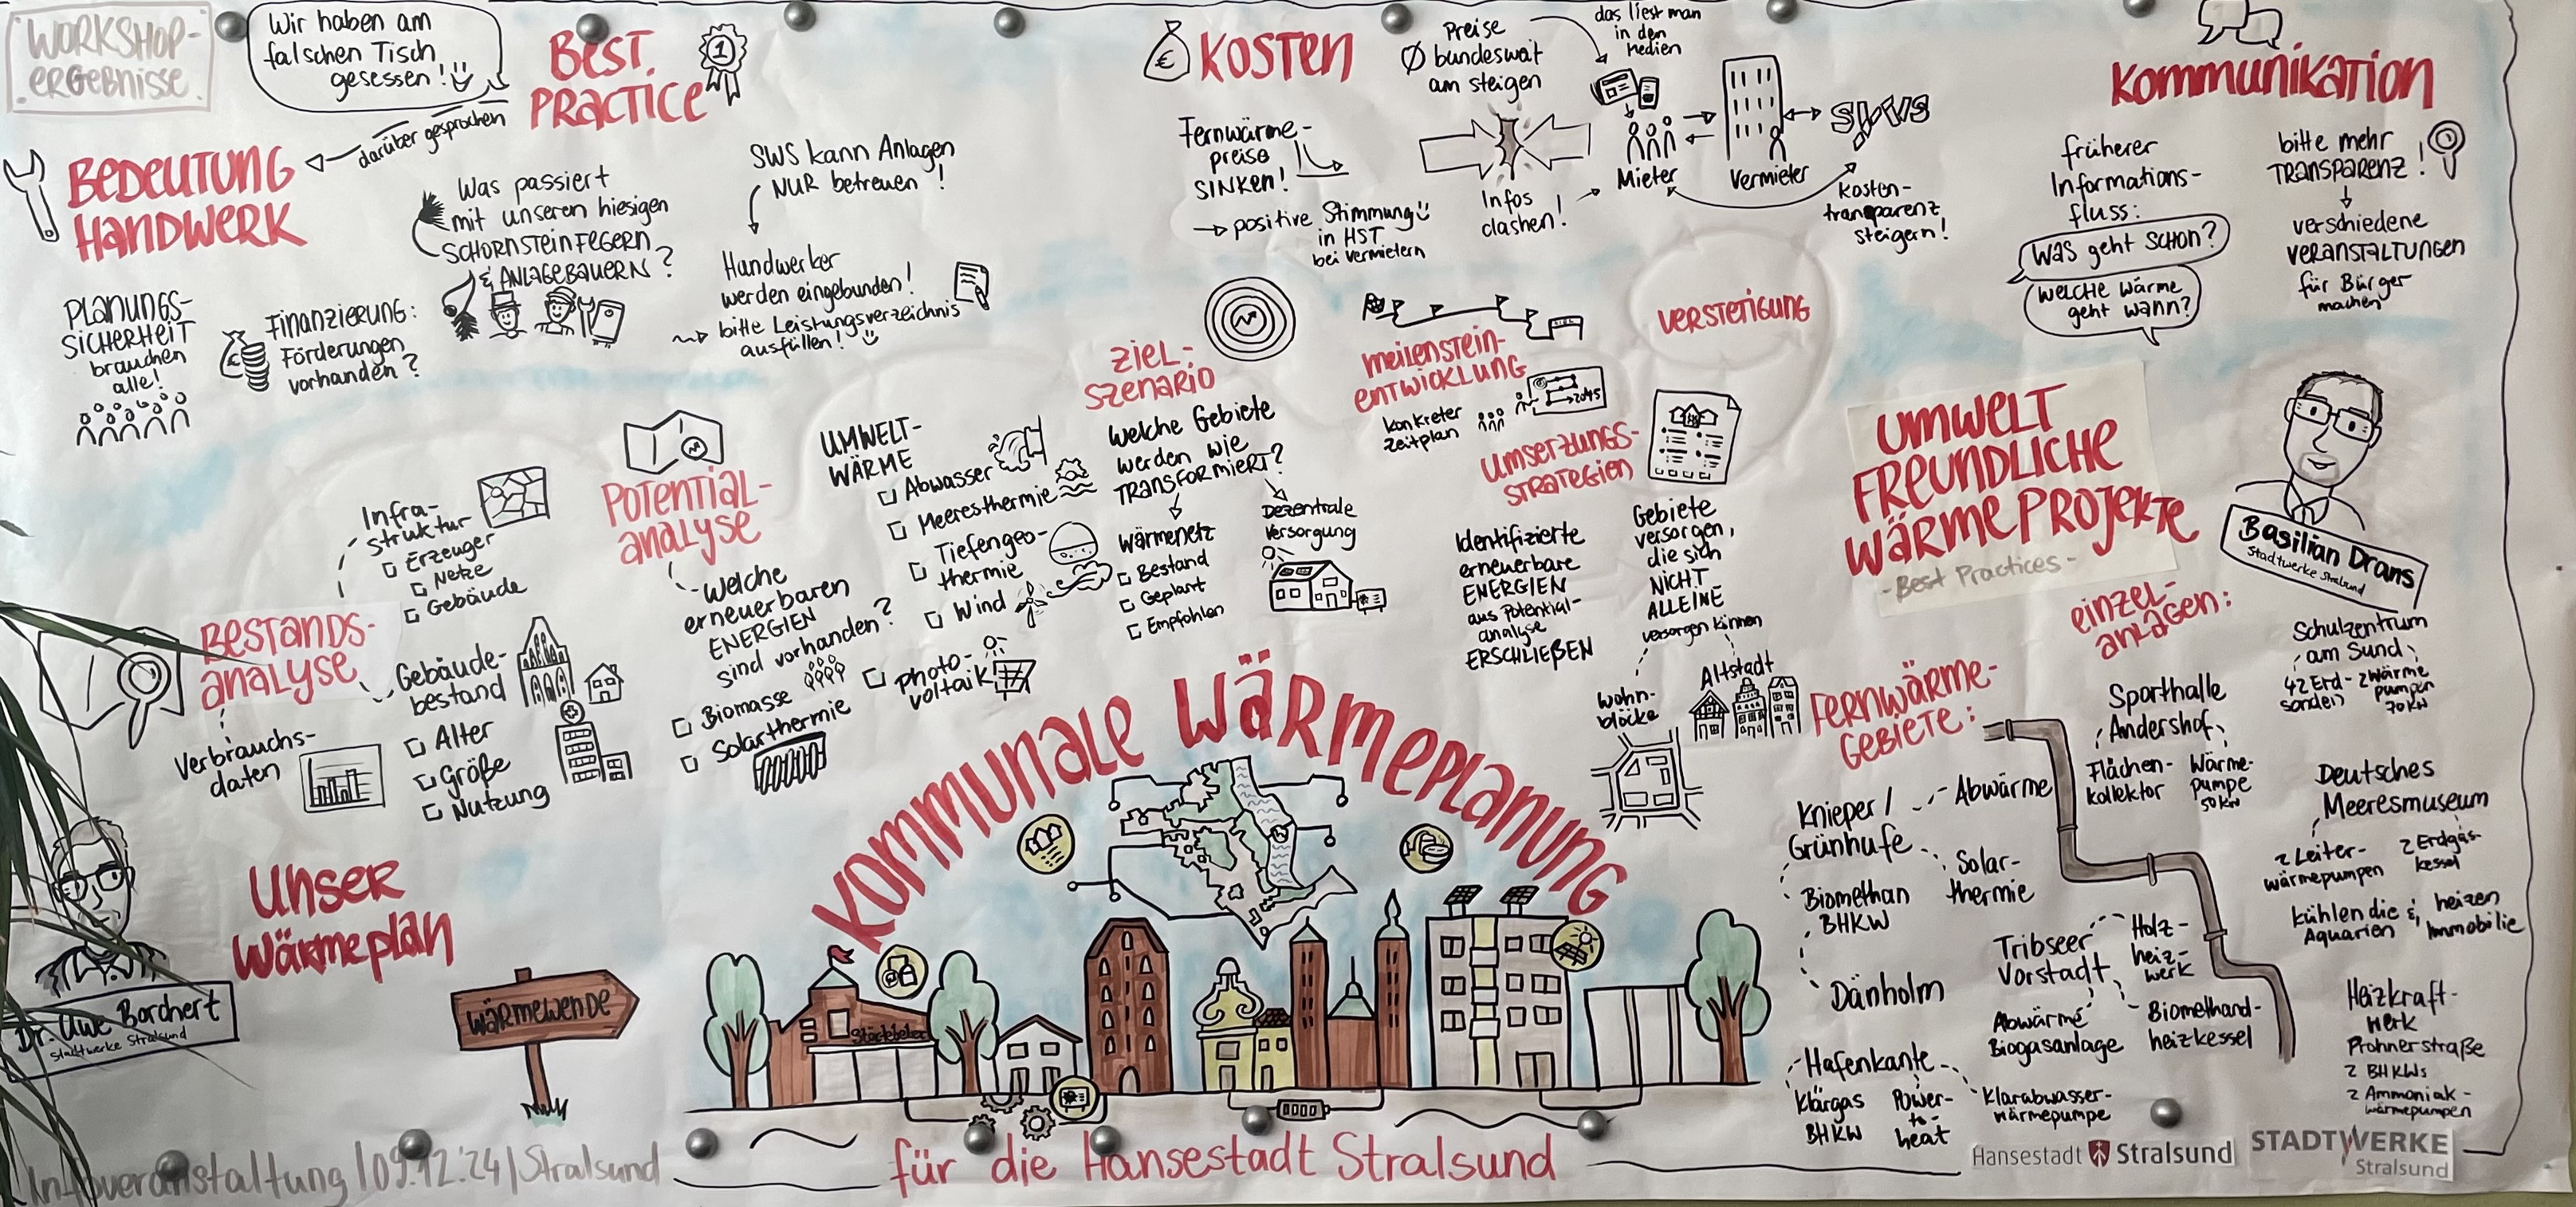 WORKSHOP-
ERGEBNISSE
Wir haben am
falschen Tisch
gesessen!
darüber gesprochen
BEST
PRACTICE
1
BEDEUTUNG
HANDWERK
PLANUNGS-
SICHERHEIT
brauchen
alle!
FINANZIERUNG:
Förderungen
vorhanden?
Was passiert
mit unseren hiesigen
SCHORNSTEINFEGERN
& ANLAGEBAUERN?
SWS kann Anlagen
NUR betreuen!
Handwerker
werden eingebunden!
bitte Leistungsverzeichnis
ausfüllen!
€ KOSTEN
Fernwärme-
preise
SINKEN!
→ positive Stimmung
in HST
bei Vermietern
Preise
Ø bundesweit
am steigen
Infos
clashen!
das liest man
in den
Medien
Mieter
Vermieter
SWS
Kosten-
transparenz
steigern!
KOMMUNIKATION
früherer
Informations-
fluss:
Was geht SCHON?
WELCHE Wärme
geht wann?
bitte mehr
TRANSPARENZ!
verschiedene
VERANSTALTUNGEN
für Bürger
machen
BESTANDS-
analyse
Infra-
struktur
Erzeuger
Netze
Gebäude
Verbrauchs-
daten
Gebäude-
bestand
Alter
Größe
Nutzung
POTENTIAL-
analyse
Welche
erneuerbaren
ENERGIEN
sind vorhanden?
Biomasse
Solarthermie
UMWELT-
WÄRME
Abwasser
Meeresthermie
Tiefengeo-
thermie
Wind
Photo-
voltaik
ZIEL-
SZENARIO
Welche Gebiete
werden wie
TRANSFORMIERT?
Wärmenetz
Bestand
Geplant
Empfohlen
Dezentrale
Versorgung
MEILENSTEIN-
ENTWICKLUNG
ZIEL
konkreter
Zeitplan
→2045
UMSETZUNGS-
STRATEGIEN
Identifizierte
erneuerbare
ENERGIEN
aus Potential-
analyse
ERSCHLIEßEN
VERSTETIGUNG
Gebiete
versorgen,
die sich
NICHT
ALLEINE
versorgen können
Wohn-
blöcke
Altstadt
UMWELT
FREUNDLICHE
WÄRMEPROJEKTE
- Best Practices -
Basilian Drans
Stadtwerke Stralsund
FERNWÄRME-
GEBIETE:
Knieper/
Grünhufe
Abwärme
Solar-
thermie
Biomethan
BHKW
Dänholm
Tribseer
Vorstadt
Holz-
heiz-
werk
Abwärme
Biogasanlage
Biomethand-
heizkessel
Hafenkante
Klärgas
BHKW
Power-
to-
heat
Klarabwasser-
wärmepumpe
EINZEL-
ANLAGEN:
Schulzentrum
am Sund
42 Erd-
sonden
2 Wärme
pumpen
70 KW
Sporthalle
Andershof
Flächen-
kollektor
Wärme-
pumpe
50 KW
Deutsches
Meeresmuseum
2 Leiter-
wärmepumpen
2 Erdgas-
kessel
kühlen die
Aquarien
& heizen
Immobilie
Heizkraft-
werk
Prohnerstraße
2 BHKWs
2 Ammoniak-
wärmepumpen
UNSER
Wärmeplan
Dr. Uwe Borchert
Stadtwerke Stralsund
WÄRMEWENDE
KOMMUNALE WÄRMEPLANUNG
Störtebeker
für die Hansestadt Stralsund
Infoveranstaltung | 09.12.'24 | Stralsund
Hansestadt Stralsund
STADTWERKE
Stralsund